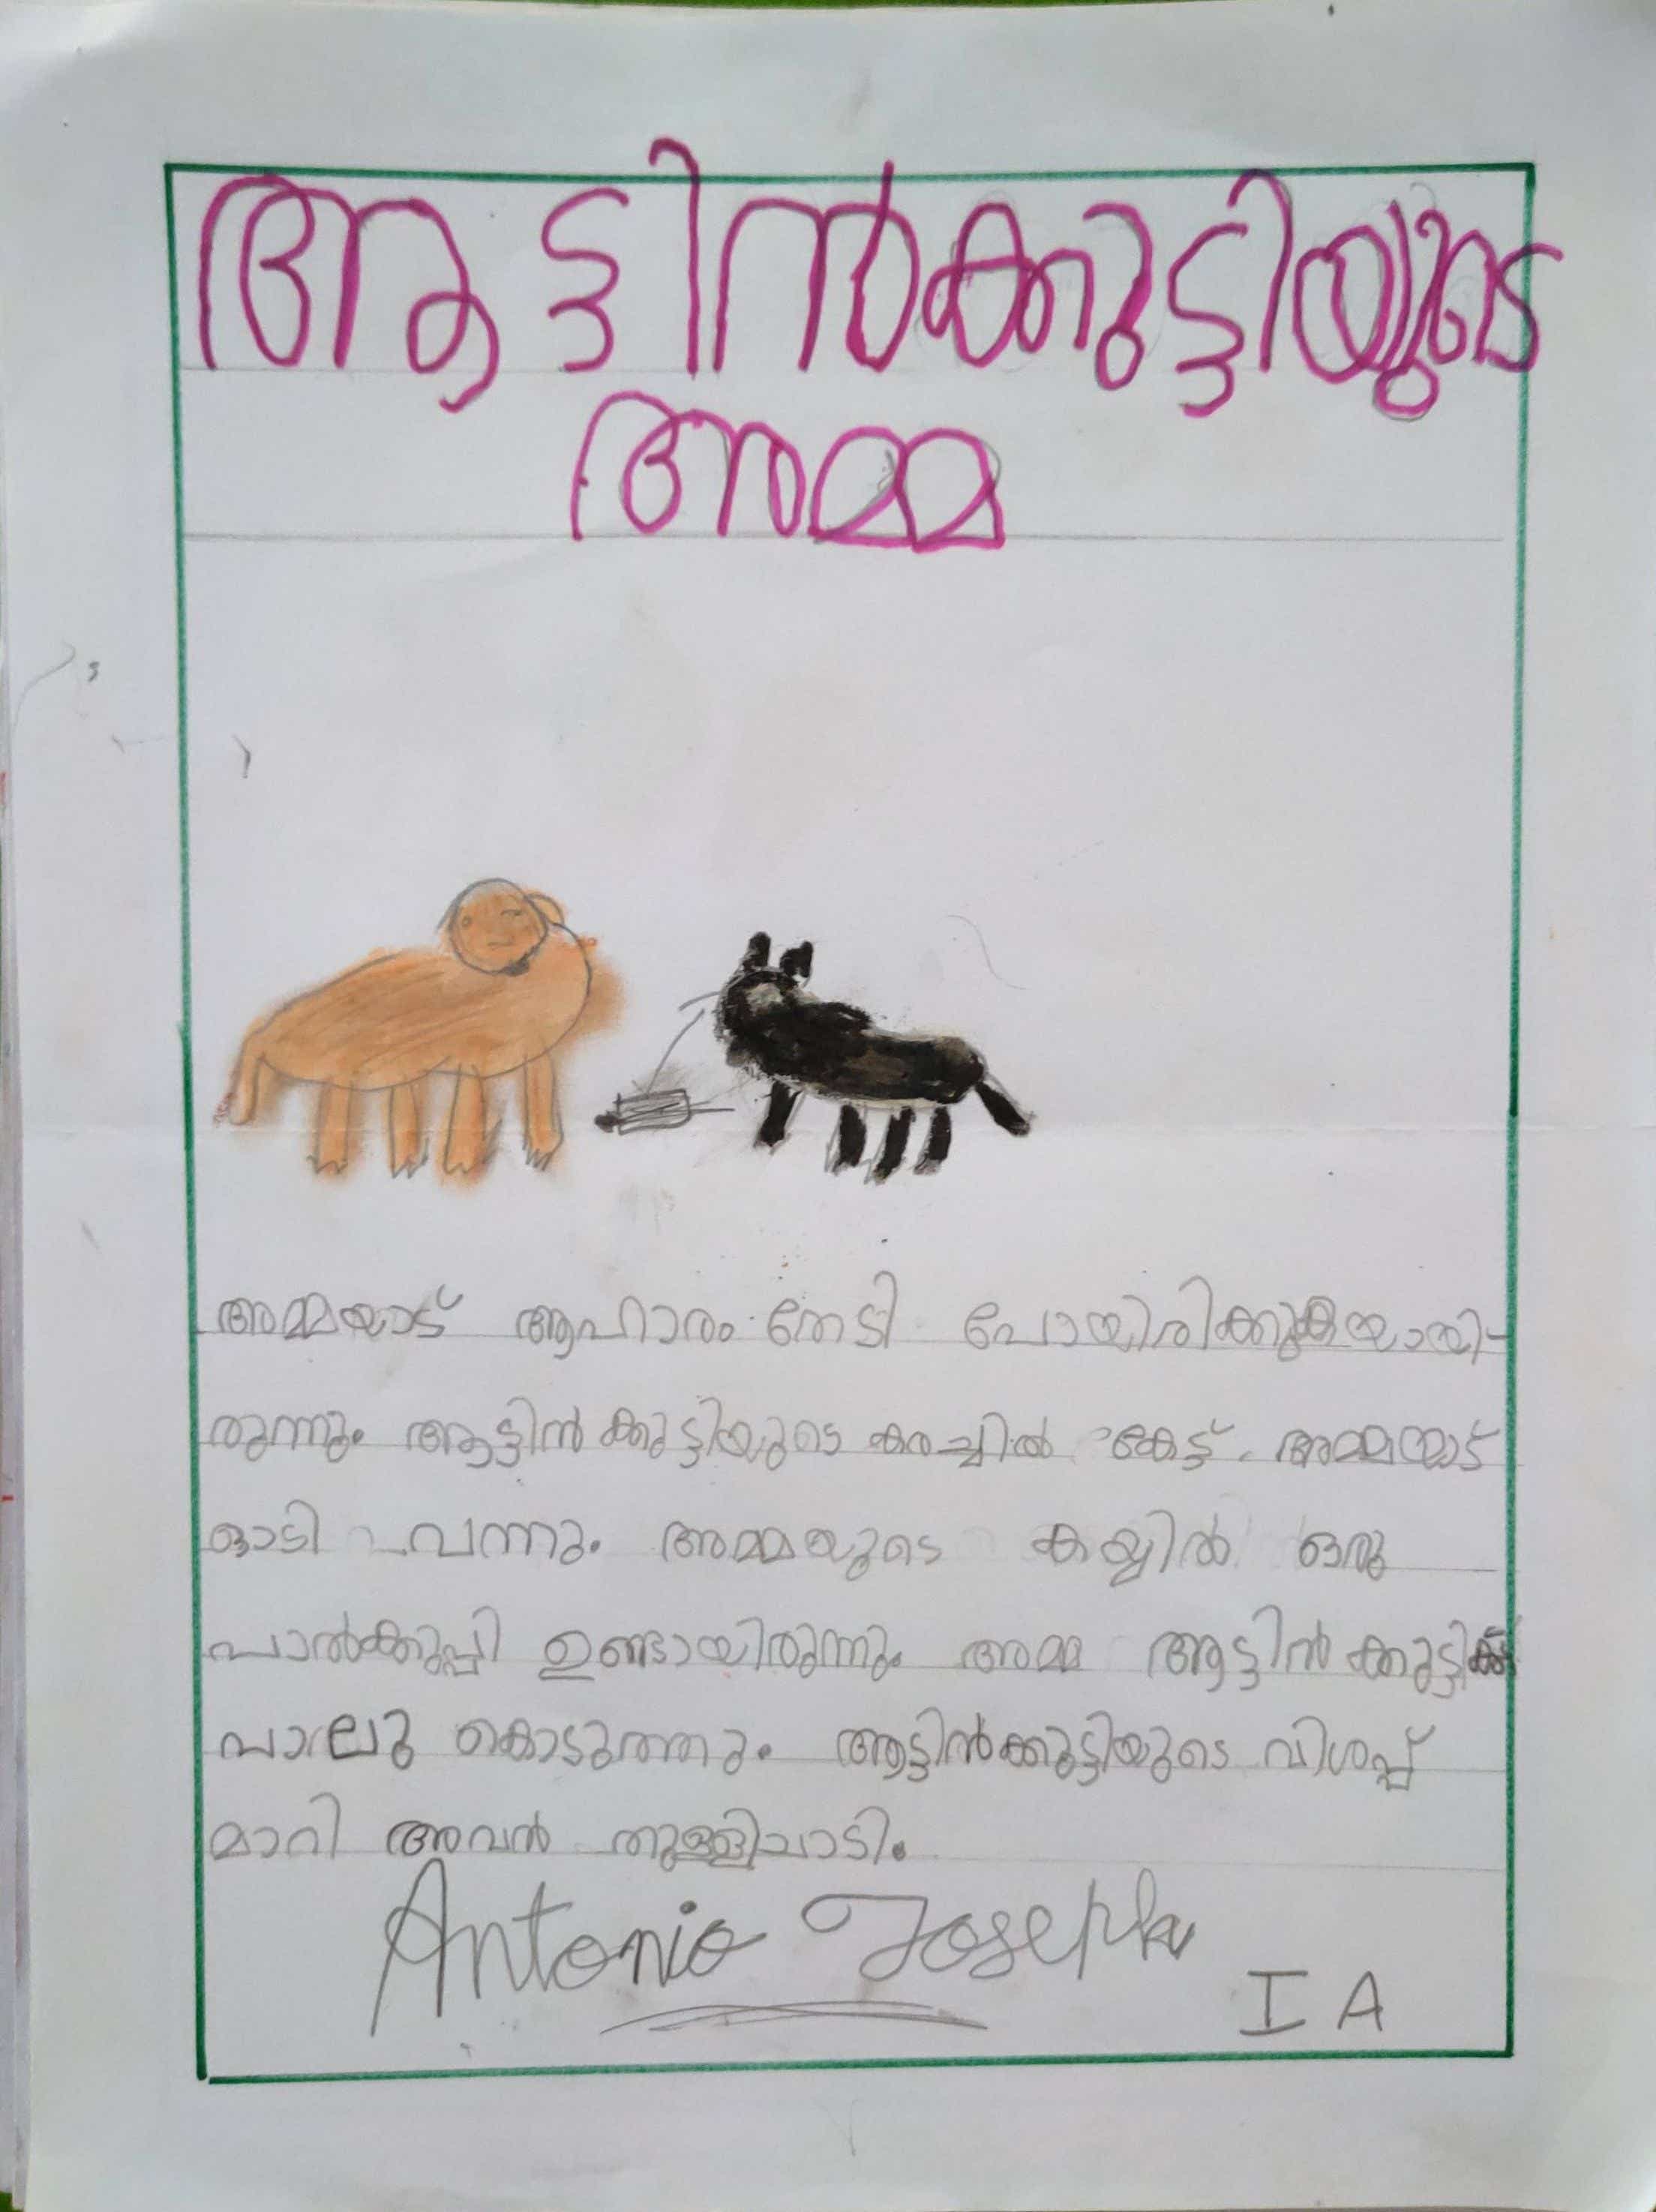 ആട്ടിൻക്കുട്ടിയുടെ
അമ്മ
അമ്മയാട് ആഹാരം തേടി പോയിരിക്കുകയായി-
രുന്നും. ആട്ടിൻ ക്കുട്ടിയുടെ കരച്ചിൽ കേട്ട്. അമ്മയാട്
ഓടി വന്നും. അമ്മയുടെ കയ്യിൽ ഒരു
പാൽക്കുപ്പി ഉണ്ടായിരുന്നും. അമ്മ ആട്ടിൻ ക്കുട്ടിക്ക്
പാലു കൊടുത്തു. ആട്ടിൻക്കുട്ടിയുടെ വിശപ്പ്
മാറി അവൻ തുള്ളിചാടി.
Antonio Joseph
I A